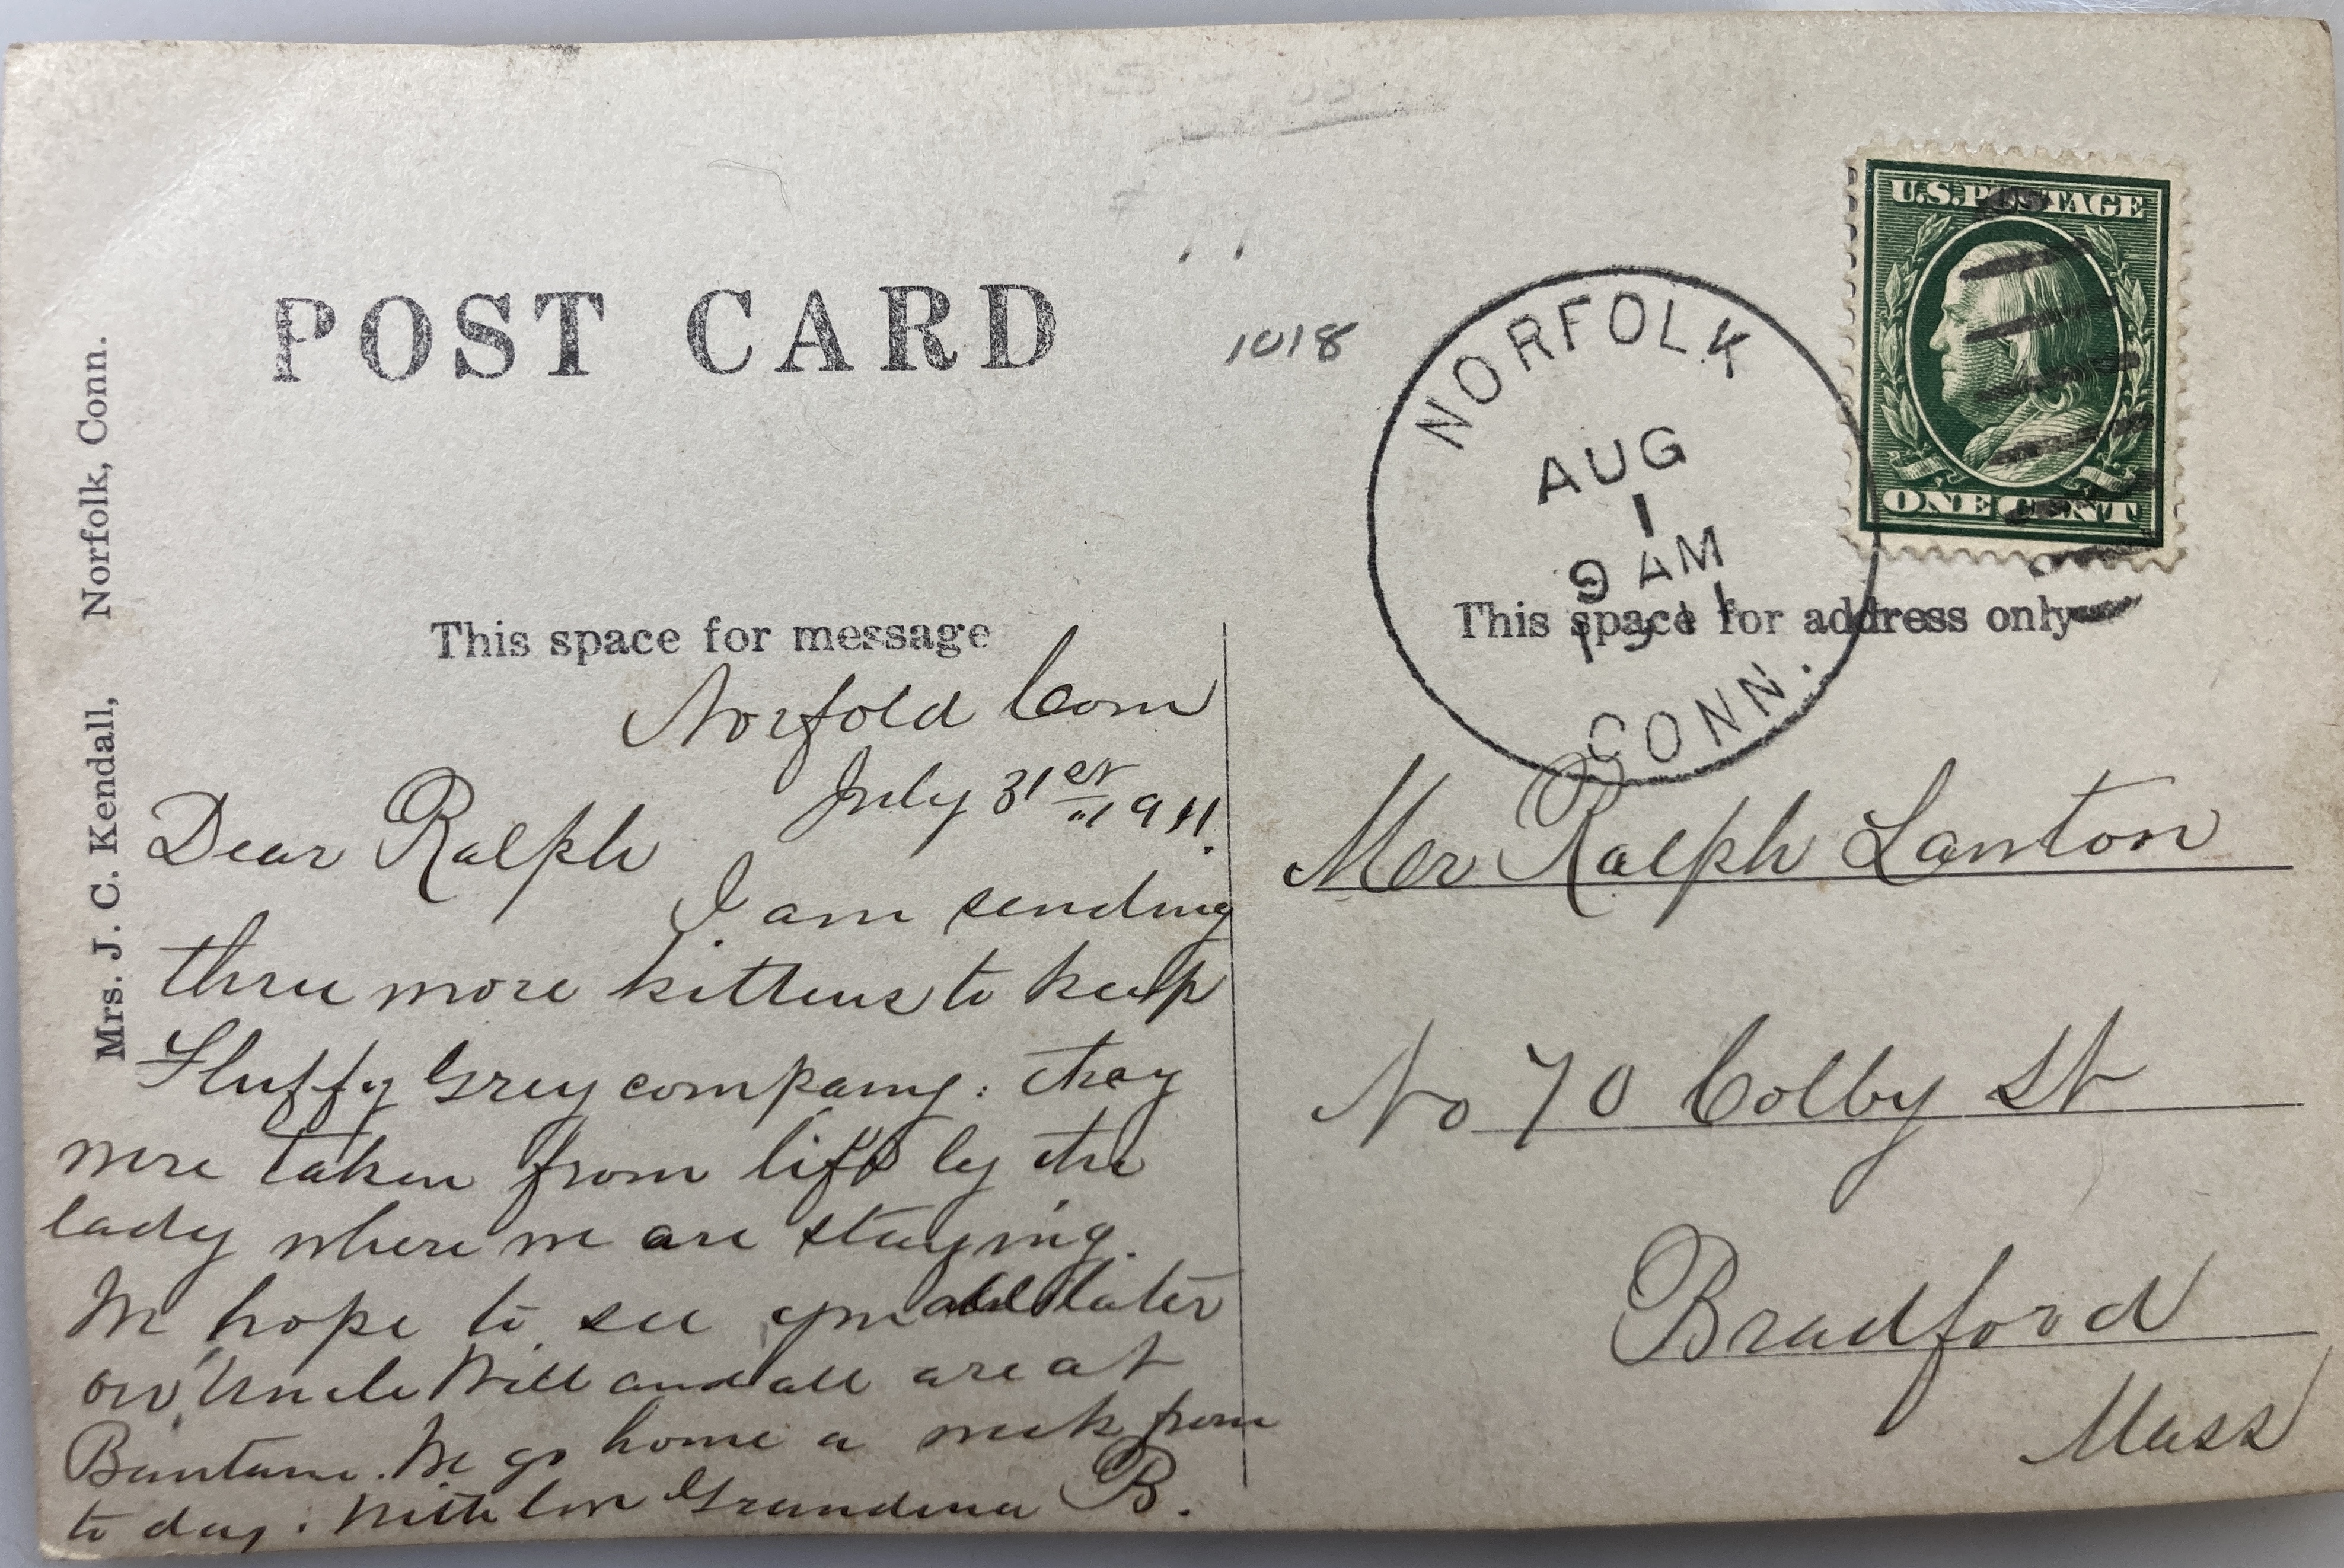 POST CARD
1018
U.S. POSTAGE
ONE CENT
NORFOLK
AUG
1
9 AM
1911
CONN.
Mrs. J. C. Kendall, Norfolk, Conn.
This space for message
This space for address only
Norfold Conn
July 31st 1911.
Dear Ralph
I am sending
three more kittens to keep
Fluffy Grey company. they
were taken from life by the
lady where we are staying.
We hope to see you all later
on Uncle Will and all are at
Bantam. We go home a week from
to day. With love Grandma B.
Mr Ralph Lanton
No 70 Colby St
Bradford
Mass